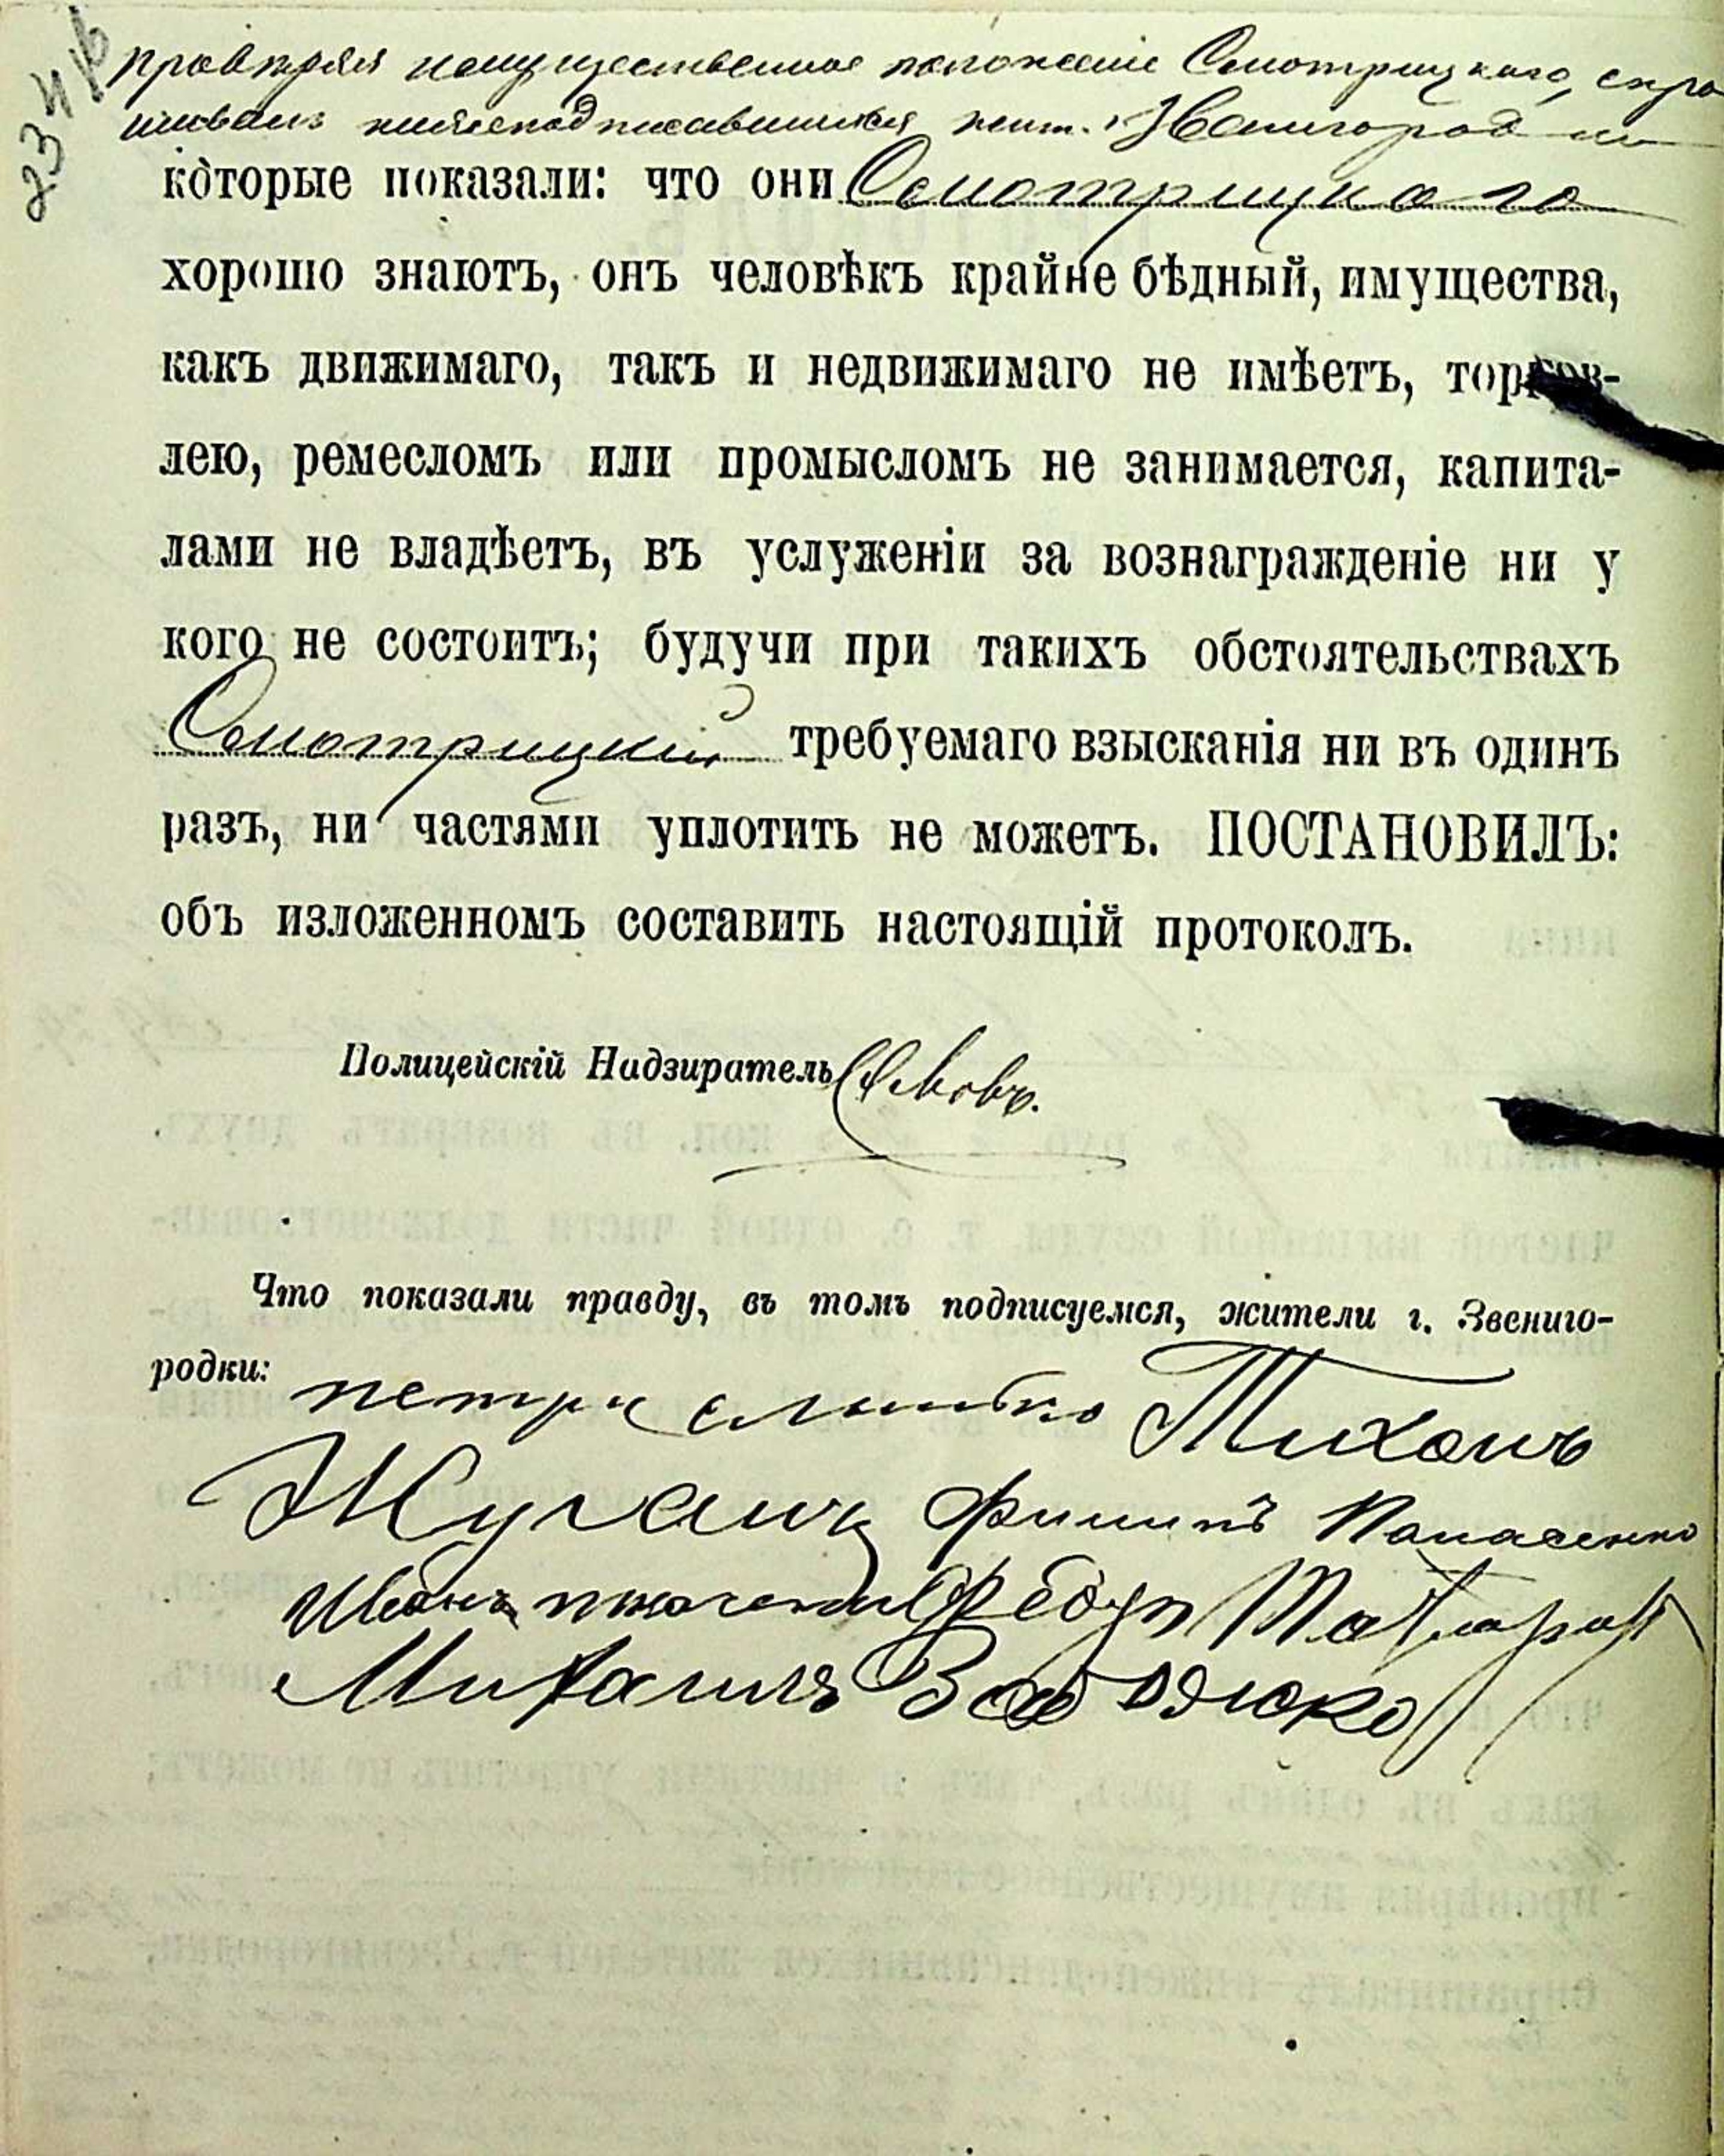 234 об
провѣряя имущественное положеніе Смотрицкаго, спра
шивалъ нижеподписавшихся жит. г. Звенигородки
которые показали: что они Смотрицкаго
хорошо знаютъ, онъ человѣкъ крайне бѣдный, имущества,
какъ движимаго, такъ и недвижимаго не имѣетъ, торгов-
лею, ремесломъ или промысломъ не занимается, капита-
лами не владѣетъ, въ услуженіи за вознагражденіе ни у
кого не состоитъ; будучи при такихъ обстоятельствахъ
Смотрицкій требуемаго взысканія ни въ одинъ
разъ, ни частями уплотить не можетъ. ПОСТАНОВИЛЪ:
объ изложенномъ составить настоящій протоколъ.
Полицейскій Надзиратель
Что показали правду, въ томъ подписуемся, жители г. Звениго-
родки:
петро Тихонъ
Филипъ Панасенко
Иванъ Федур
Михаилъ